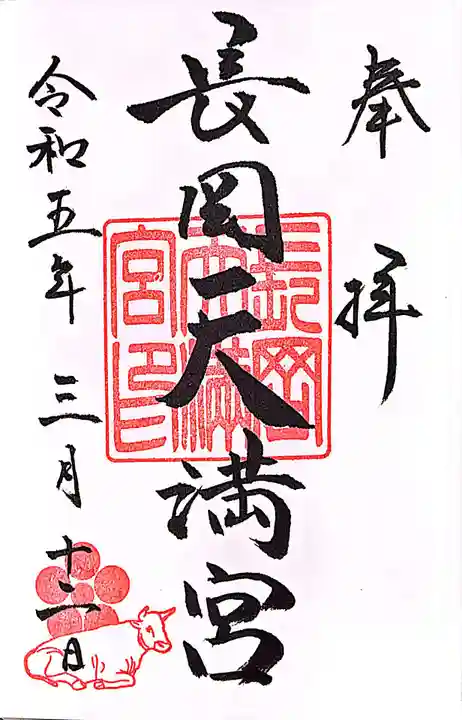 奉拝
長岡天満宮
長岡天満宮印
令和五年三月十二日